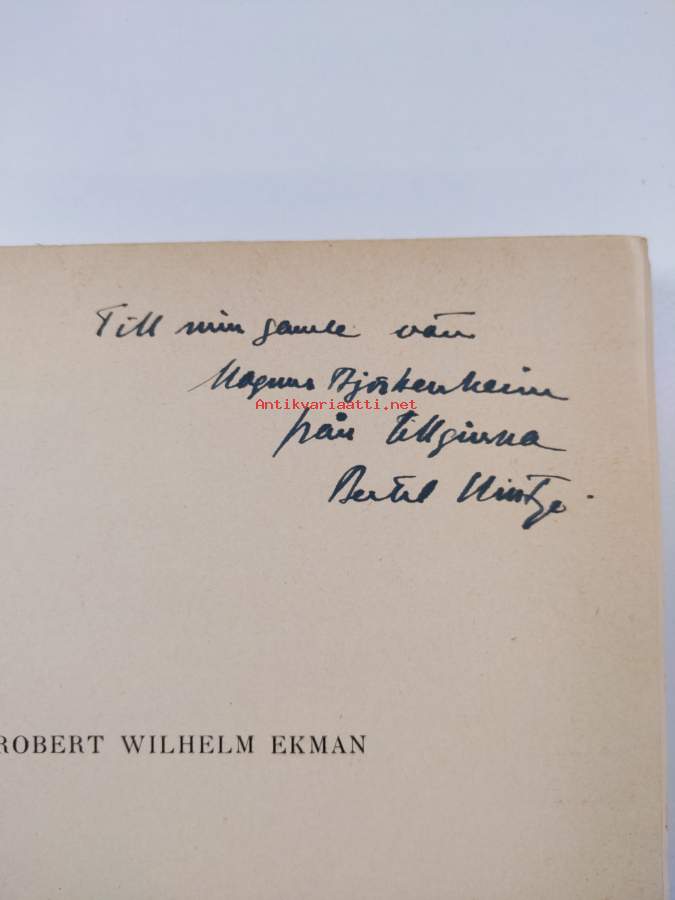 Till min gamle vän
Magnus Björkenheim
Antikvariaatti.net
från tillgivna
Bertel Hintze.
ROBERT WILHELM EKMAN